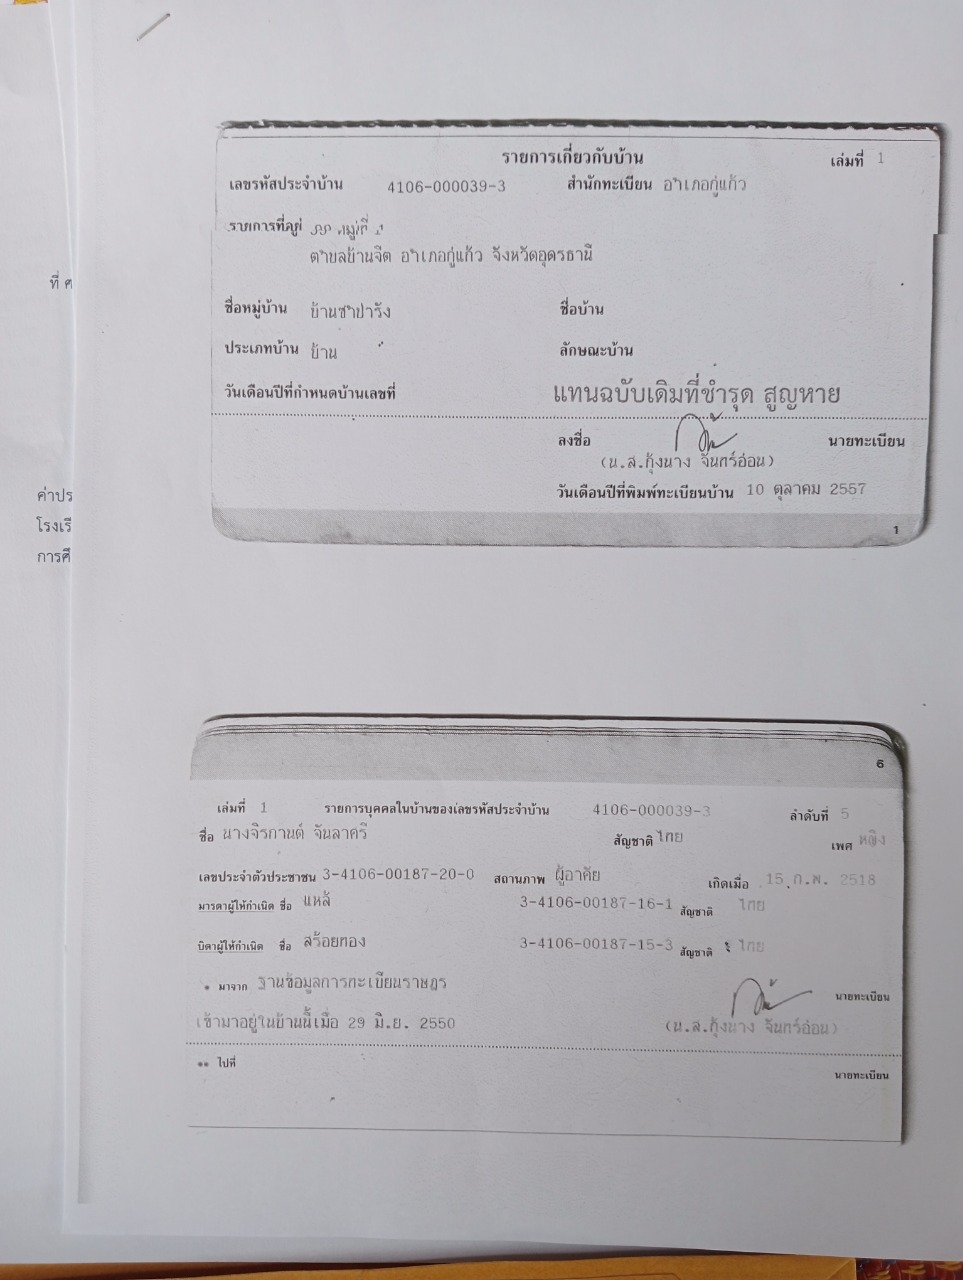 ที่ ศ
ค่าประ
โรงเรี
การศึ
รายการเกี่ยวกับบ้าน เล่มที่ 1
เลขรหัสประจำบ้าน 4106-000039-3 สำนักทะเบียน อำเภอกู่แก้ว
รายการที่อยู่ หมู่ที่
ตำบลบ้านจีต อำเภอกู่แก้ว จังหวัดอุดรธานี
ชื่อหมู่บ้าน บ้านซำป่ารัง ชื่อบ้าน
ประเภทบ้าน บ้าน ลักษณะบ้าน
วันเดือนปีที่กำหนดบ้านเลขที่ แทนฉบับเดิมที่ชำรุด สูญหาย
ลงชื่อ นายทะเบียน
(น.ส.กุ้งนาง จันทร์อ่อน)
วันเดือนปีที่พิมพ์ทะเบียนบ้าน 10 ตุลาคม 2557
1
6
เล่มที่ 1 รายการบุคคลในบ้านของเลขรหัสประจำบ้าน 4106-000039-3 ลำดับที่ 5
ชื่อ นางจิรกานต์ จันลาศรี สัญชาติ ไทย เพศ หญิง
เลขประจำตัวประชาชน 3-4106-00187-20-0 สถานภาพ ผู้อาศัย เกิดเมื่อ 15 ก.พ. 2518
มารดาผู้ให้กำเนิด ชื่อ แหล้ 3-4106-00187-16-1 สัญชาติ ไทย
บิดาผู้ให้กำเนิด ชื่อ สร้อยทอง 3-4106-00187-15-3 สัญชาติ ไทย
* มาจาก ฐานข้อมูลการทะเบียนราษฎร นายทะเบียน
เข้ามาอยู่ในบ้านนี้เมื่อ 29 มิ.ย. 2550 (น.ส.กุ้งนาง จันทร์อ่อน)
** ไปที่
นายทะเบียน